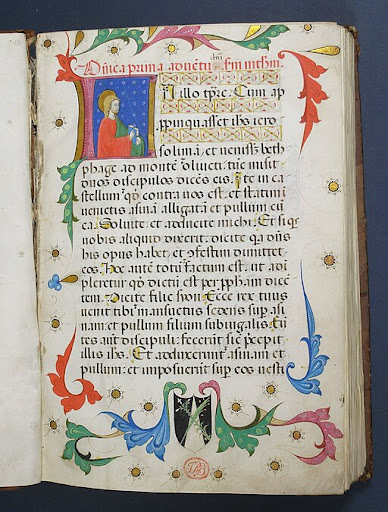 Dn̄ica prima aduētus s̄m matheū.
In illo tp̄re. Cum ap
propinquasset ihs iero
solimā, et uenisset beth
phage ad montē oliueti: tūc misit
duos discipulos dicēs eis. Ite in ca
stellum qd̄ contra uos est, et statim i
uenietis asinā alligatā et pullum cū
ea. Soluite, et adducite michi. Et si qs
uobis aliquid dixerit: dicite qa dn̄s
his opus habet, et ꝯfestim dimittet
eos. Hoc autē totū factum est, ut adi
pleretur qd̄ dictū est per ꝓphām dicē
tem. Dicite filie syon. Ecce rex tuus
uenit tibi mansuetus sedens sup asi
nam et pullum filium subiugalis. Eū
tes aūt discipuli: fecerūt sic̄ p̄cepit
illis ihs. Et adduxerunt asinam et
pullum: et imposuerūt sup eos uesti